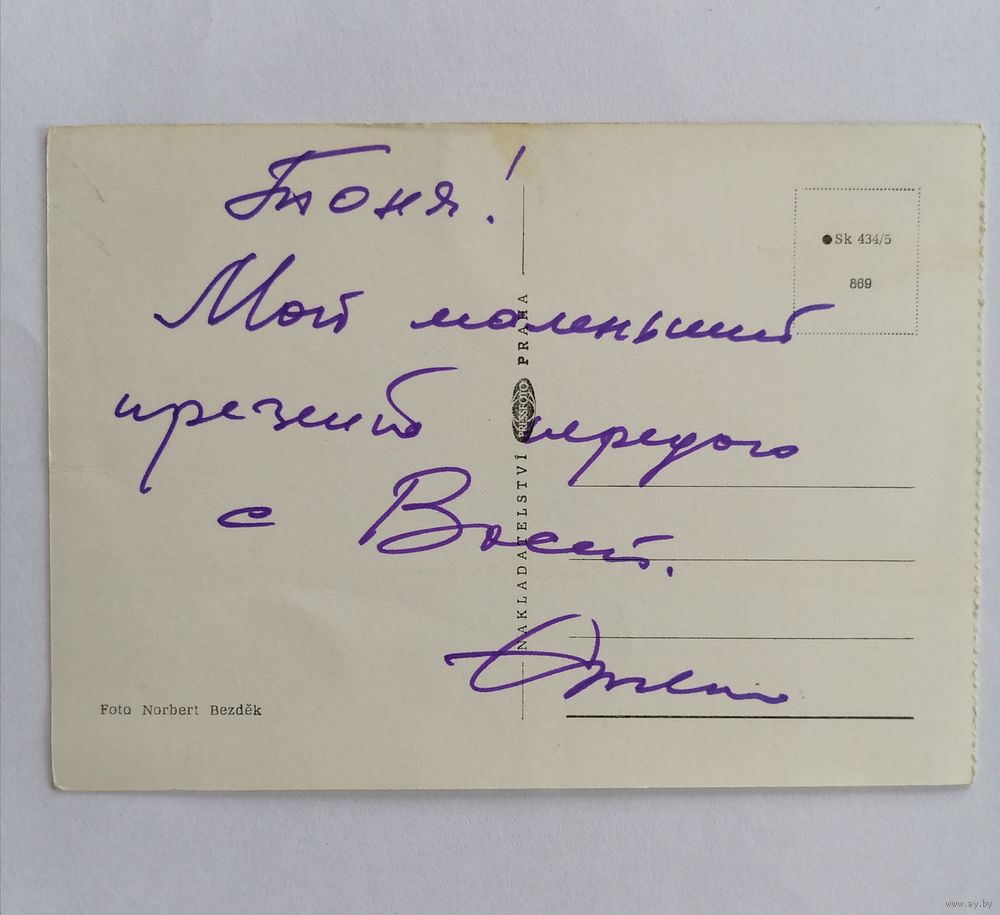 Тоня!
Мой маленький
презент передаю
с Васей.
Sk 434/5
869
NAKLADATELSTVÍ PRESSFOTO PRAHA
Foto Norbert Bezděk
www.ay.by